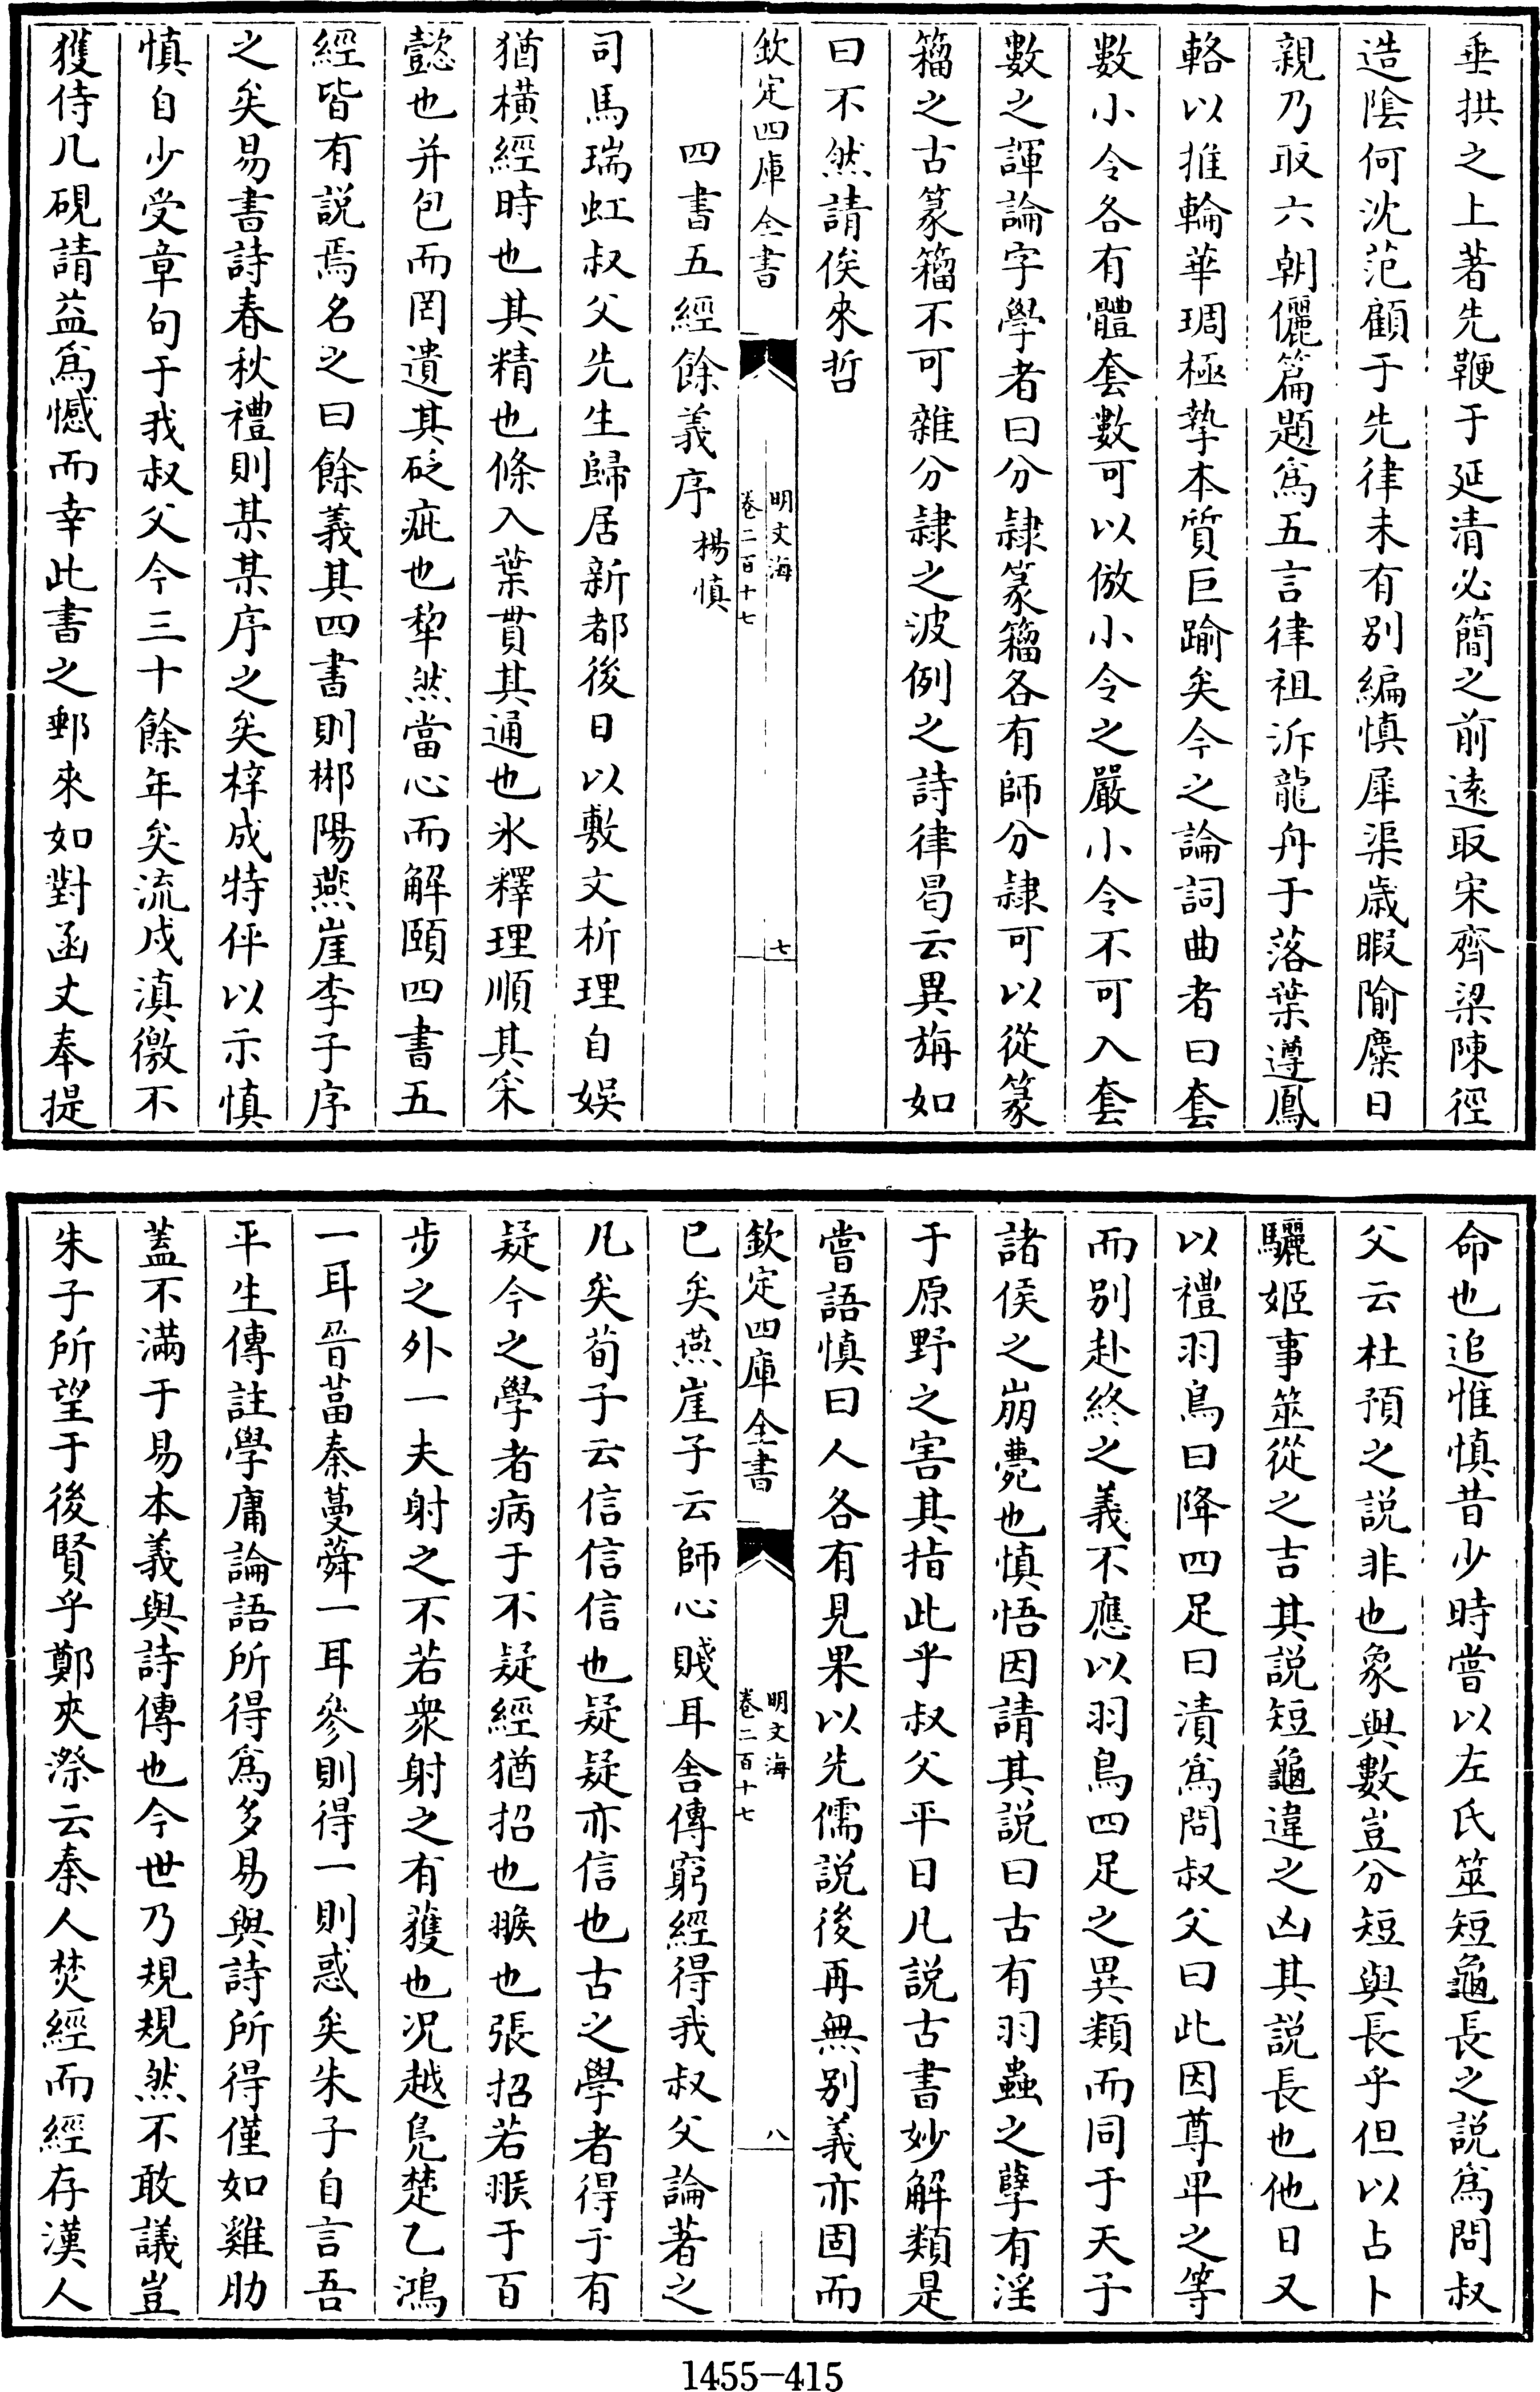 垂拱之上著先鞭于延清必簡之前遠取宋齊梁陳徑
造陰何沈范顧于先律未有别編慎犀渠歲暇隃麋日
親乃取六朝儷篇題為五言律祖泝龍舟于落葉遵鳳
輅以推輪華琱極摯本質巨踰矣今之論詞曲者曰套
數小令各有體套數可以倣小令之嚴小令不可入套
數之諢論字學者曰分隷篆籀各有師分隷可以從篆
籀之古篆籀不可雜分隷之波例之詩律曷云異旃如
曰不然請俟來哲
欽定四庫全書
明文海
卷二百十七
七
四書五經餘義序 楊慎
司馬瑞虹叔父先生歸居新都後日以敷文析理自娱
猶横經時也其精也條入葉貫其通也氷釋理順其采
懿也并包而罔遺其砭疵也犂然當心而解頤四書五
經皆有説焉名之曰餘義其四書則郴陽燕崖李子序
之矣易書詩春秋禮則某某序之矣梓成特伻以示慎
慎自少受章句于我叔父今三十餘年矣流戍滇徼不
獲侍几硯請益為憾而幸此書之郵來如對函丈奉提
命也追惟慎昔少時嘗以左氏筮短龜長之説為問叔
父云杜預之説非也象與數豈分短與長乎但以占卜
驪姬事筮從之吉其説短龜違之凶其説長也他日又
以禮羽鳥曰降四足曰漬為問叔父曰此因尊卑之等
而别赴終之義不應以羽鳥四足之異類而同于天子
諸侯之崩薨也慎悟因請其説曰古有羽蟲之孽有淫
于原野之害其指此乎叔父平日凡説古書妙解類是
嘗語慎曰人各有見果以先儒説後再無别義亦固而
欽定四庫全書
明文海
卷二百十七
八
已矣燕崖子云師心賤耳舍傳窮經得我叔父論著之
凡矣荀子云信信信也疑疑亦信也古之學者得于有
疑今之學者病于不疑經猶招也㬋也張招若㬋于百
步之外一夫射之不若衆射之有獲也况越鳧楚乙鴻
一耳晉葍秦蕿蕣一耳參則得一則惑矣朱子自言吾
平生傳註學庸論語所得為多易與詩所得僅如雞肋
蓋不滿于易本義與詩傳也今世乃規規然不敢議豈
朱子所望于後賢乎鄭夾漈云秦人焚經而經存漢人
1455-415